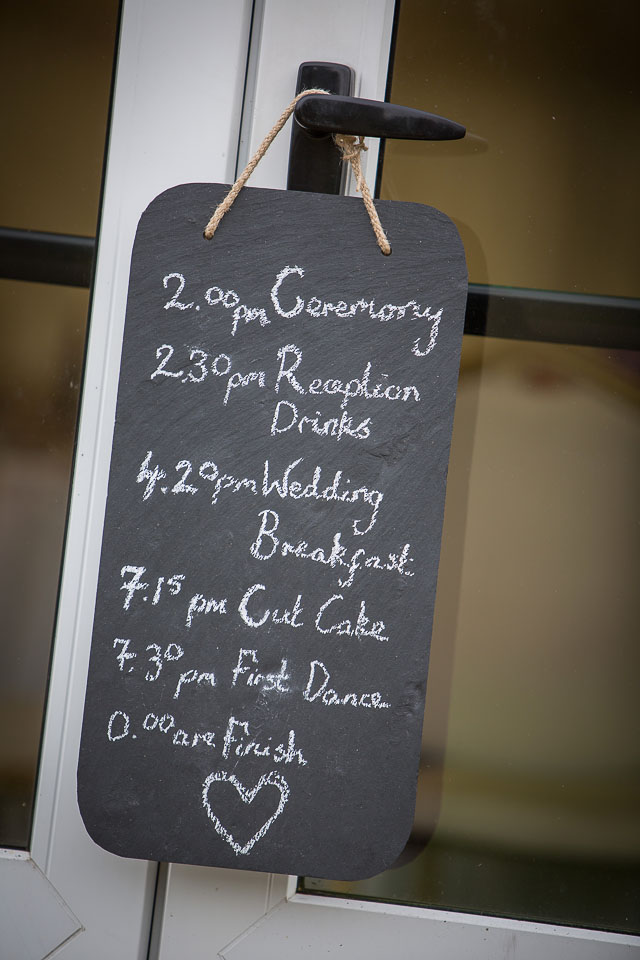 2.00pm Ceremony
2.30pm Reception
Drinks
4.20pm Wedding
Breakfast
7.15pm Cut Cake
7.30pm First Dance
0.00am Finish